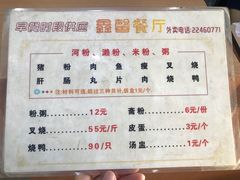 早餐时段供应 鑫馨餐厅
外卖电话:22460771
河粉、濑粉、米粉、粥
猪 粉 肉 鱼 瘦 叉 烧
肝 肠 丸 片 肉 烧 鸭
粉、粥 12元
叉烧 55元/斤
烧鸭 90/只
斋粉 6元/份
皮蛋 3元/个
汤盅 1元/个